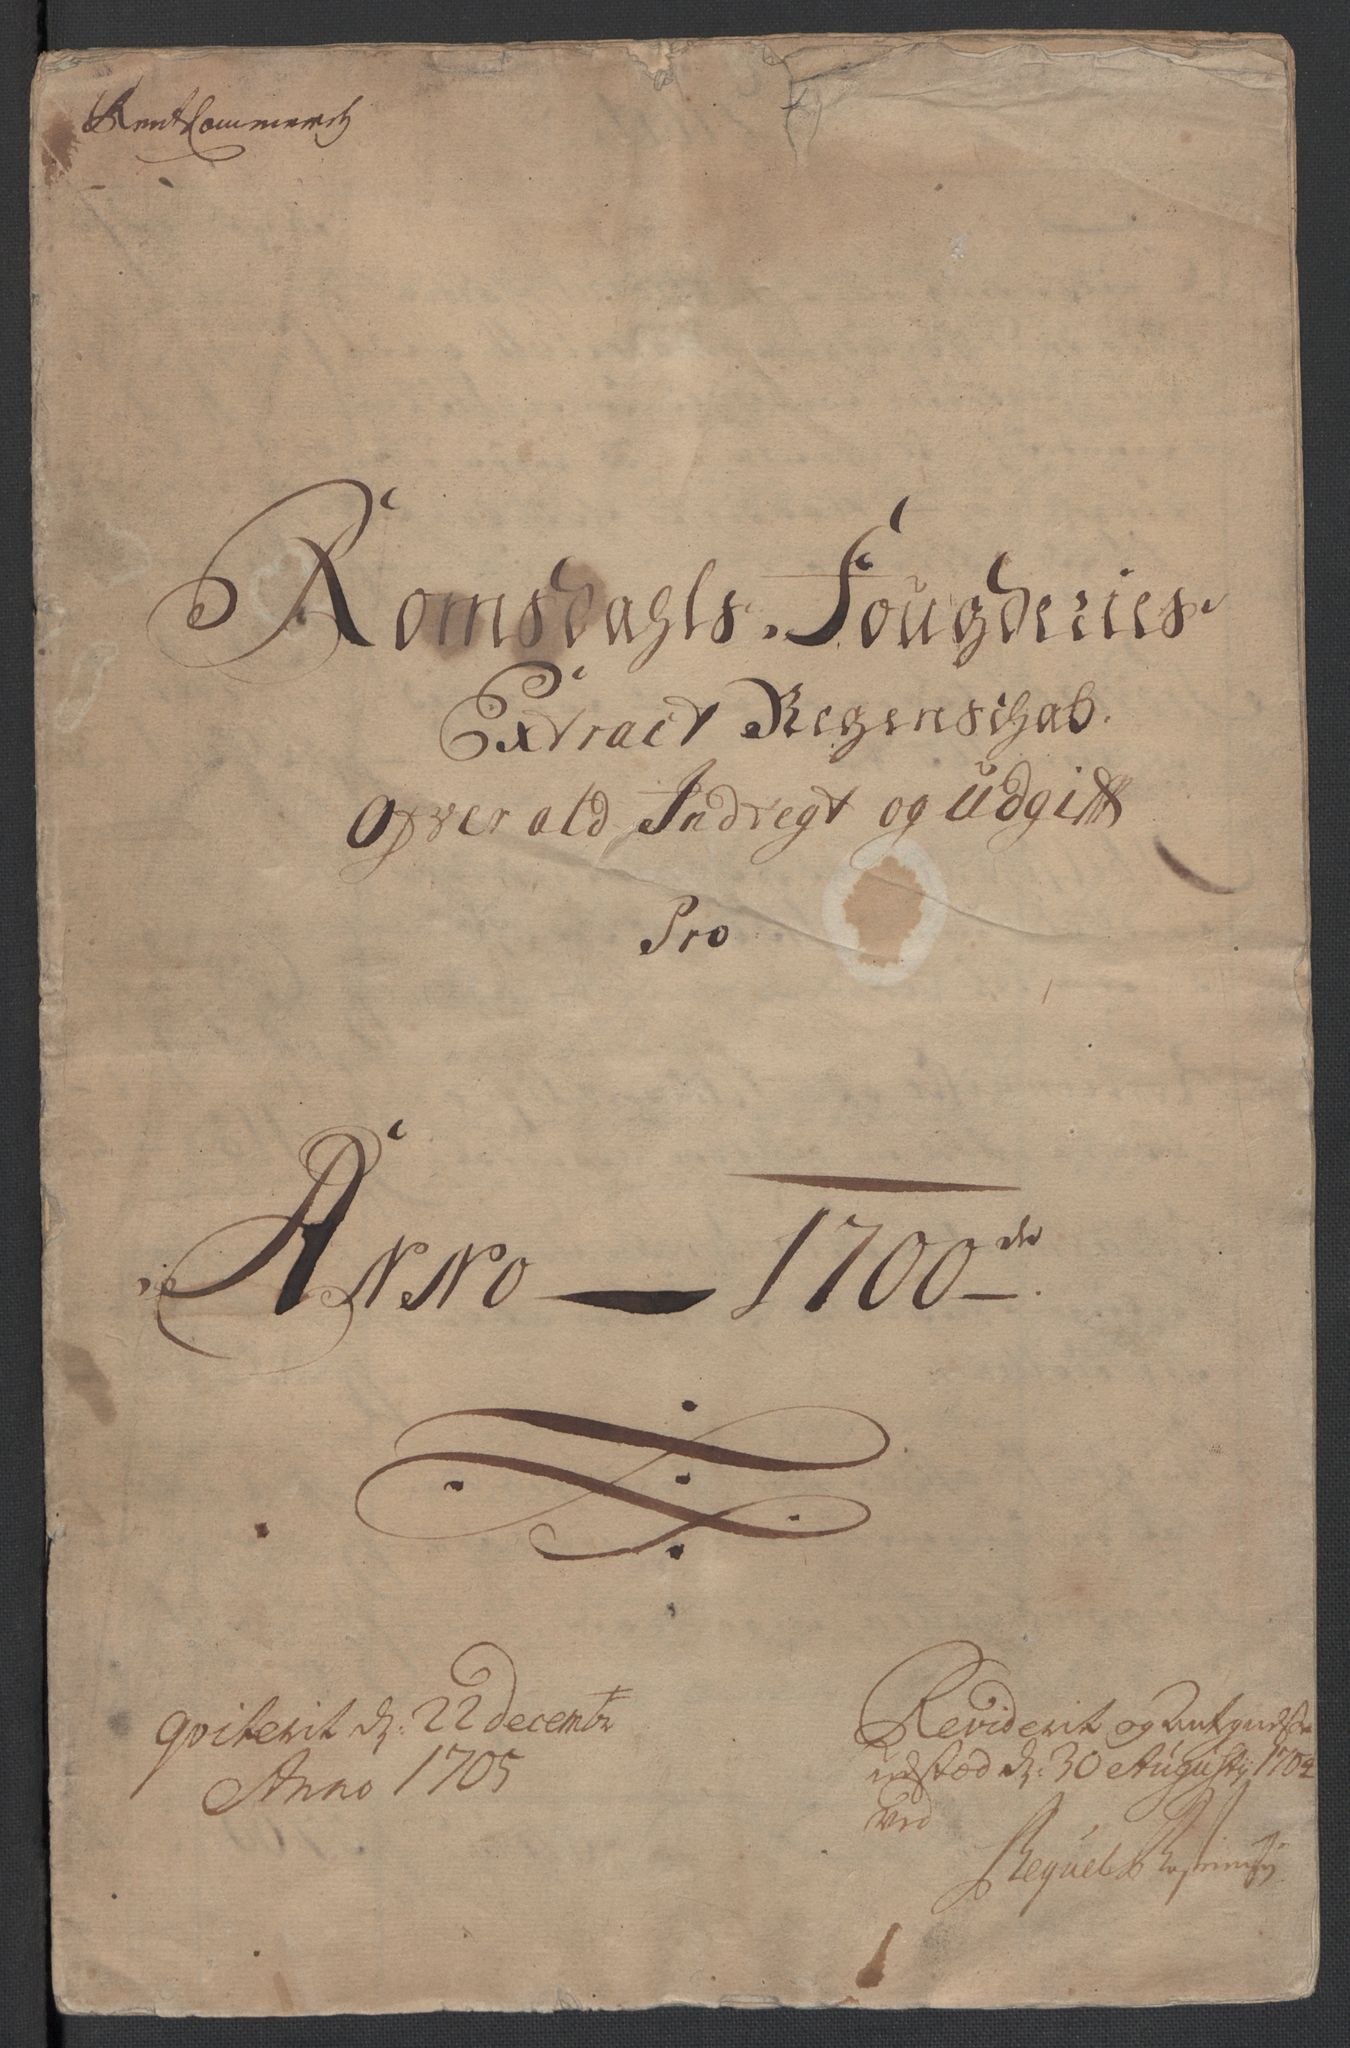 RentCammerch
Romsdahls Fougderies
Extract Regenschab
Ofver ald Indtegt og Udgifft
Pro
Anno 1700de
qviterit dn: 22 Decembr
Anno 1705
Revideret og Antegnelser
udstæd dn: 30 Augusty 1704
Ved